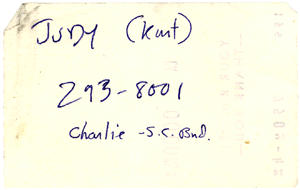 JUDY (Kurt)
293-8001
Charlie - S.C. Bnd.